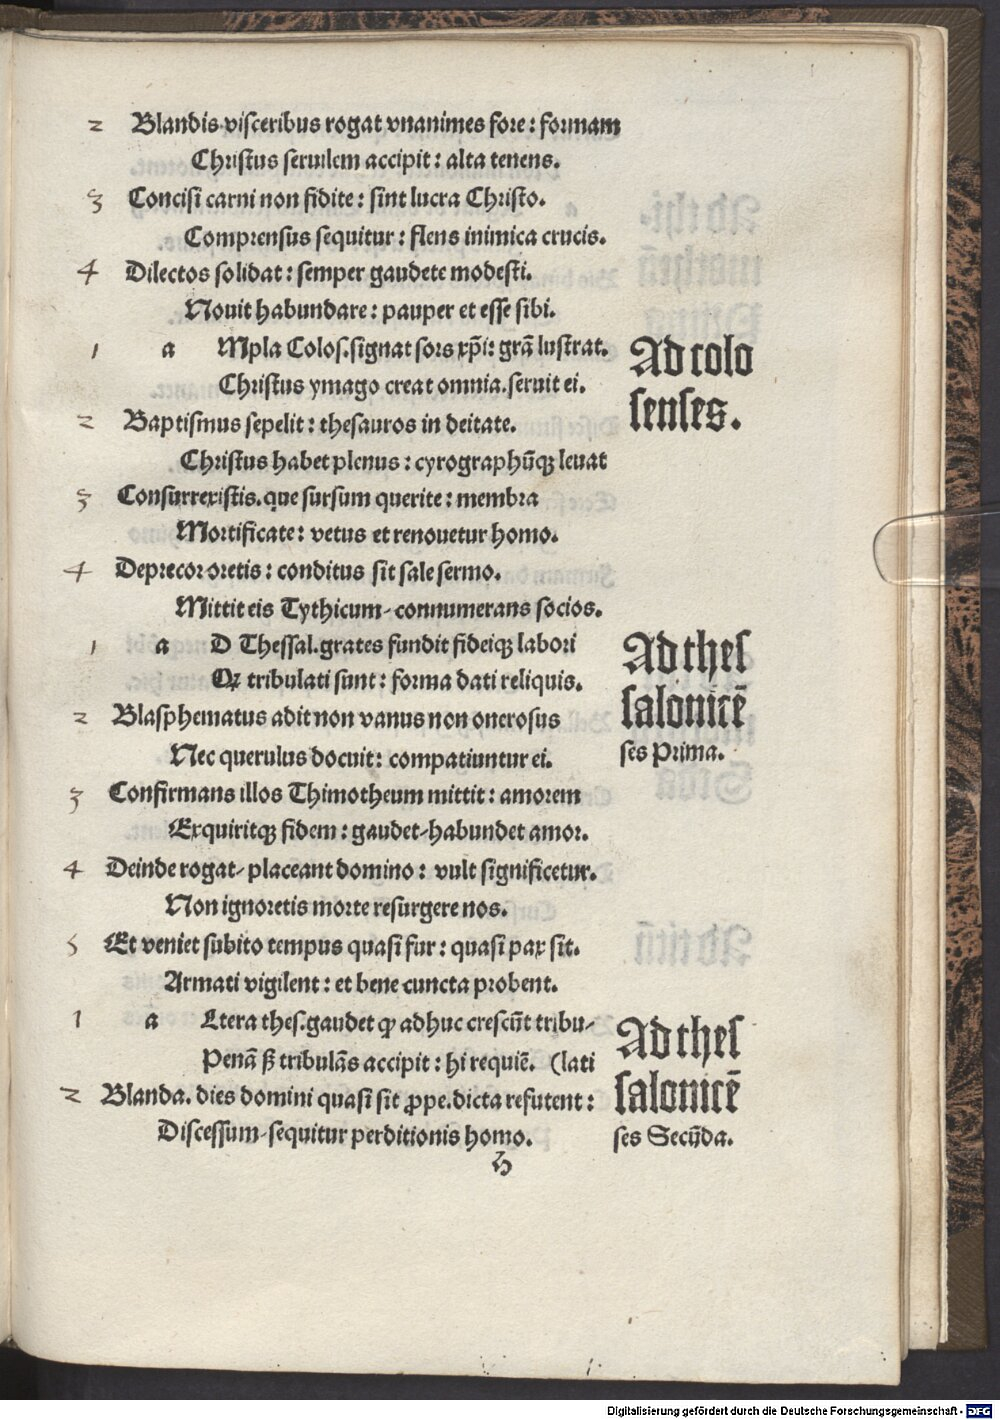 2 Blandis visceribus rogat vnanimes fore: formam
Christus seruilem accipit: alta tenens.
3 Concisi carni non fidite: sint lucra Christo.
Comprensus sequitur: flens inimica crucis.
4 Dilectos solidat: semper gaudete modesti.
Nouit habundare: pauper et esse sibi.
1 a Mpla Colos. signat sors xp̄i: grā lustrat.
Christus ymago creat omnia. seruit ei.
Ad colo
senses.
2 Baptismus sepelit: thesauros in deitate.
Christus habet plenus: cyrographūqꝫ leuat
3 Consurrexistis. que sursum querite: membra
Mortificate: vetus et renouetur homo.
4 Deprecor oretis: conditus sit sale sermo.
Mittit eis Tythicum connumerans socios.
1 a D Thessal. grates fundit fideiqꝫ labori
Qꝛ tribulati sunt: forma dati reliquis.
Ad thes
salonicē
ses Prima.
2 Blasphematus adit non vanus non onerosus
Nec querulus docuit: compatiuntur ei.
3 Confirmans illos Thimotheum mittit: amorem
Exquiritqꝫ fidem: gaudet habundet amor.
4 Deinde rogat placeant domino: vult significetur.
Non ignoretis morte resurgere nos.
5 Et veniet subito tempus quasi fur: quasi pax sit.
Armati vigilent: et bene cuncta probent.
1 a Ltera thes. gaudet ꝙ adhuc crescūt tribu-
Penā ẜ tribulās accipit: hi requiē. (lati
Ad thes
salonicē
ses Secūda.
2 Blanda. dies domini quasi sit ꝓpe. dicta refutent:
Discessum sequitur perditionis homo.
h
Digitalisierung gefördert durch die Deutsche Forschungsgemeinschaft - DFG